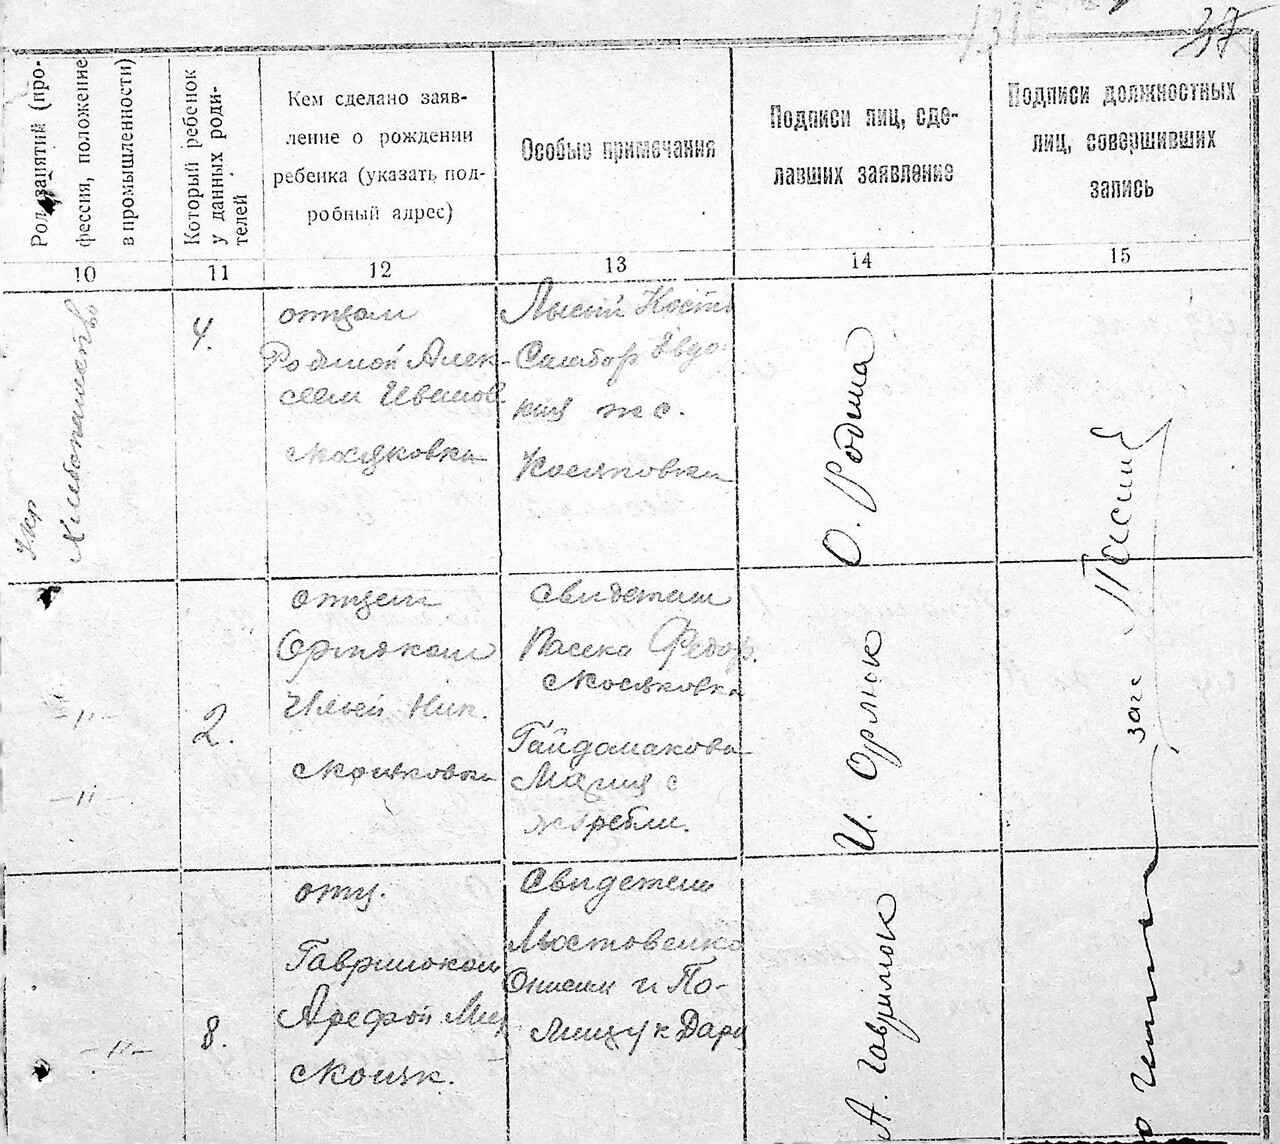 37
Род занятий (про-
фессия, положение
в промышленности)
Который ребенок
у данных роди-
телей
Кем сделано заяв-
ление о рождении
ребенка (указать под-
робный адрес)
Особые примечания
Подписи лиц, сде-
лавших заявление
Подписи должностных
лиц, совершивших
запись
10
11
12
13
14
15
Укр
Хлебопашество
4.
отцом
Родиной Алек-
сеем Иванов.
с Косяковка
Лысый Кость
Самбор Евдо-
кия ж с.
Косяковка
О. Родина
-"-
-"-
2.
отцем
Орлюком
Ильей Ник.
с Косяковка
Свидетели
Пасека Федор.
с Косяковка
Гайдамакова
Мария с
Жгребли.
И. Орлюк
-"-
8.
отц.
Гаврилюком
Арефой Ми
с Косяк.
Свидетели
Мостовенко
Онисим и По-
лищук Дарь
А. Гаврилюк
загс